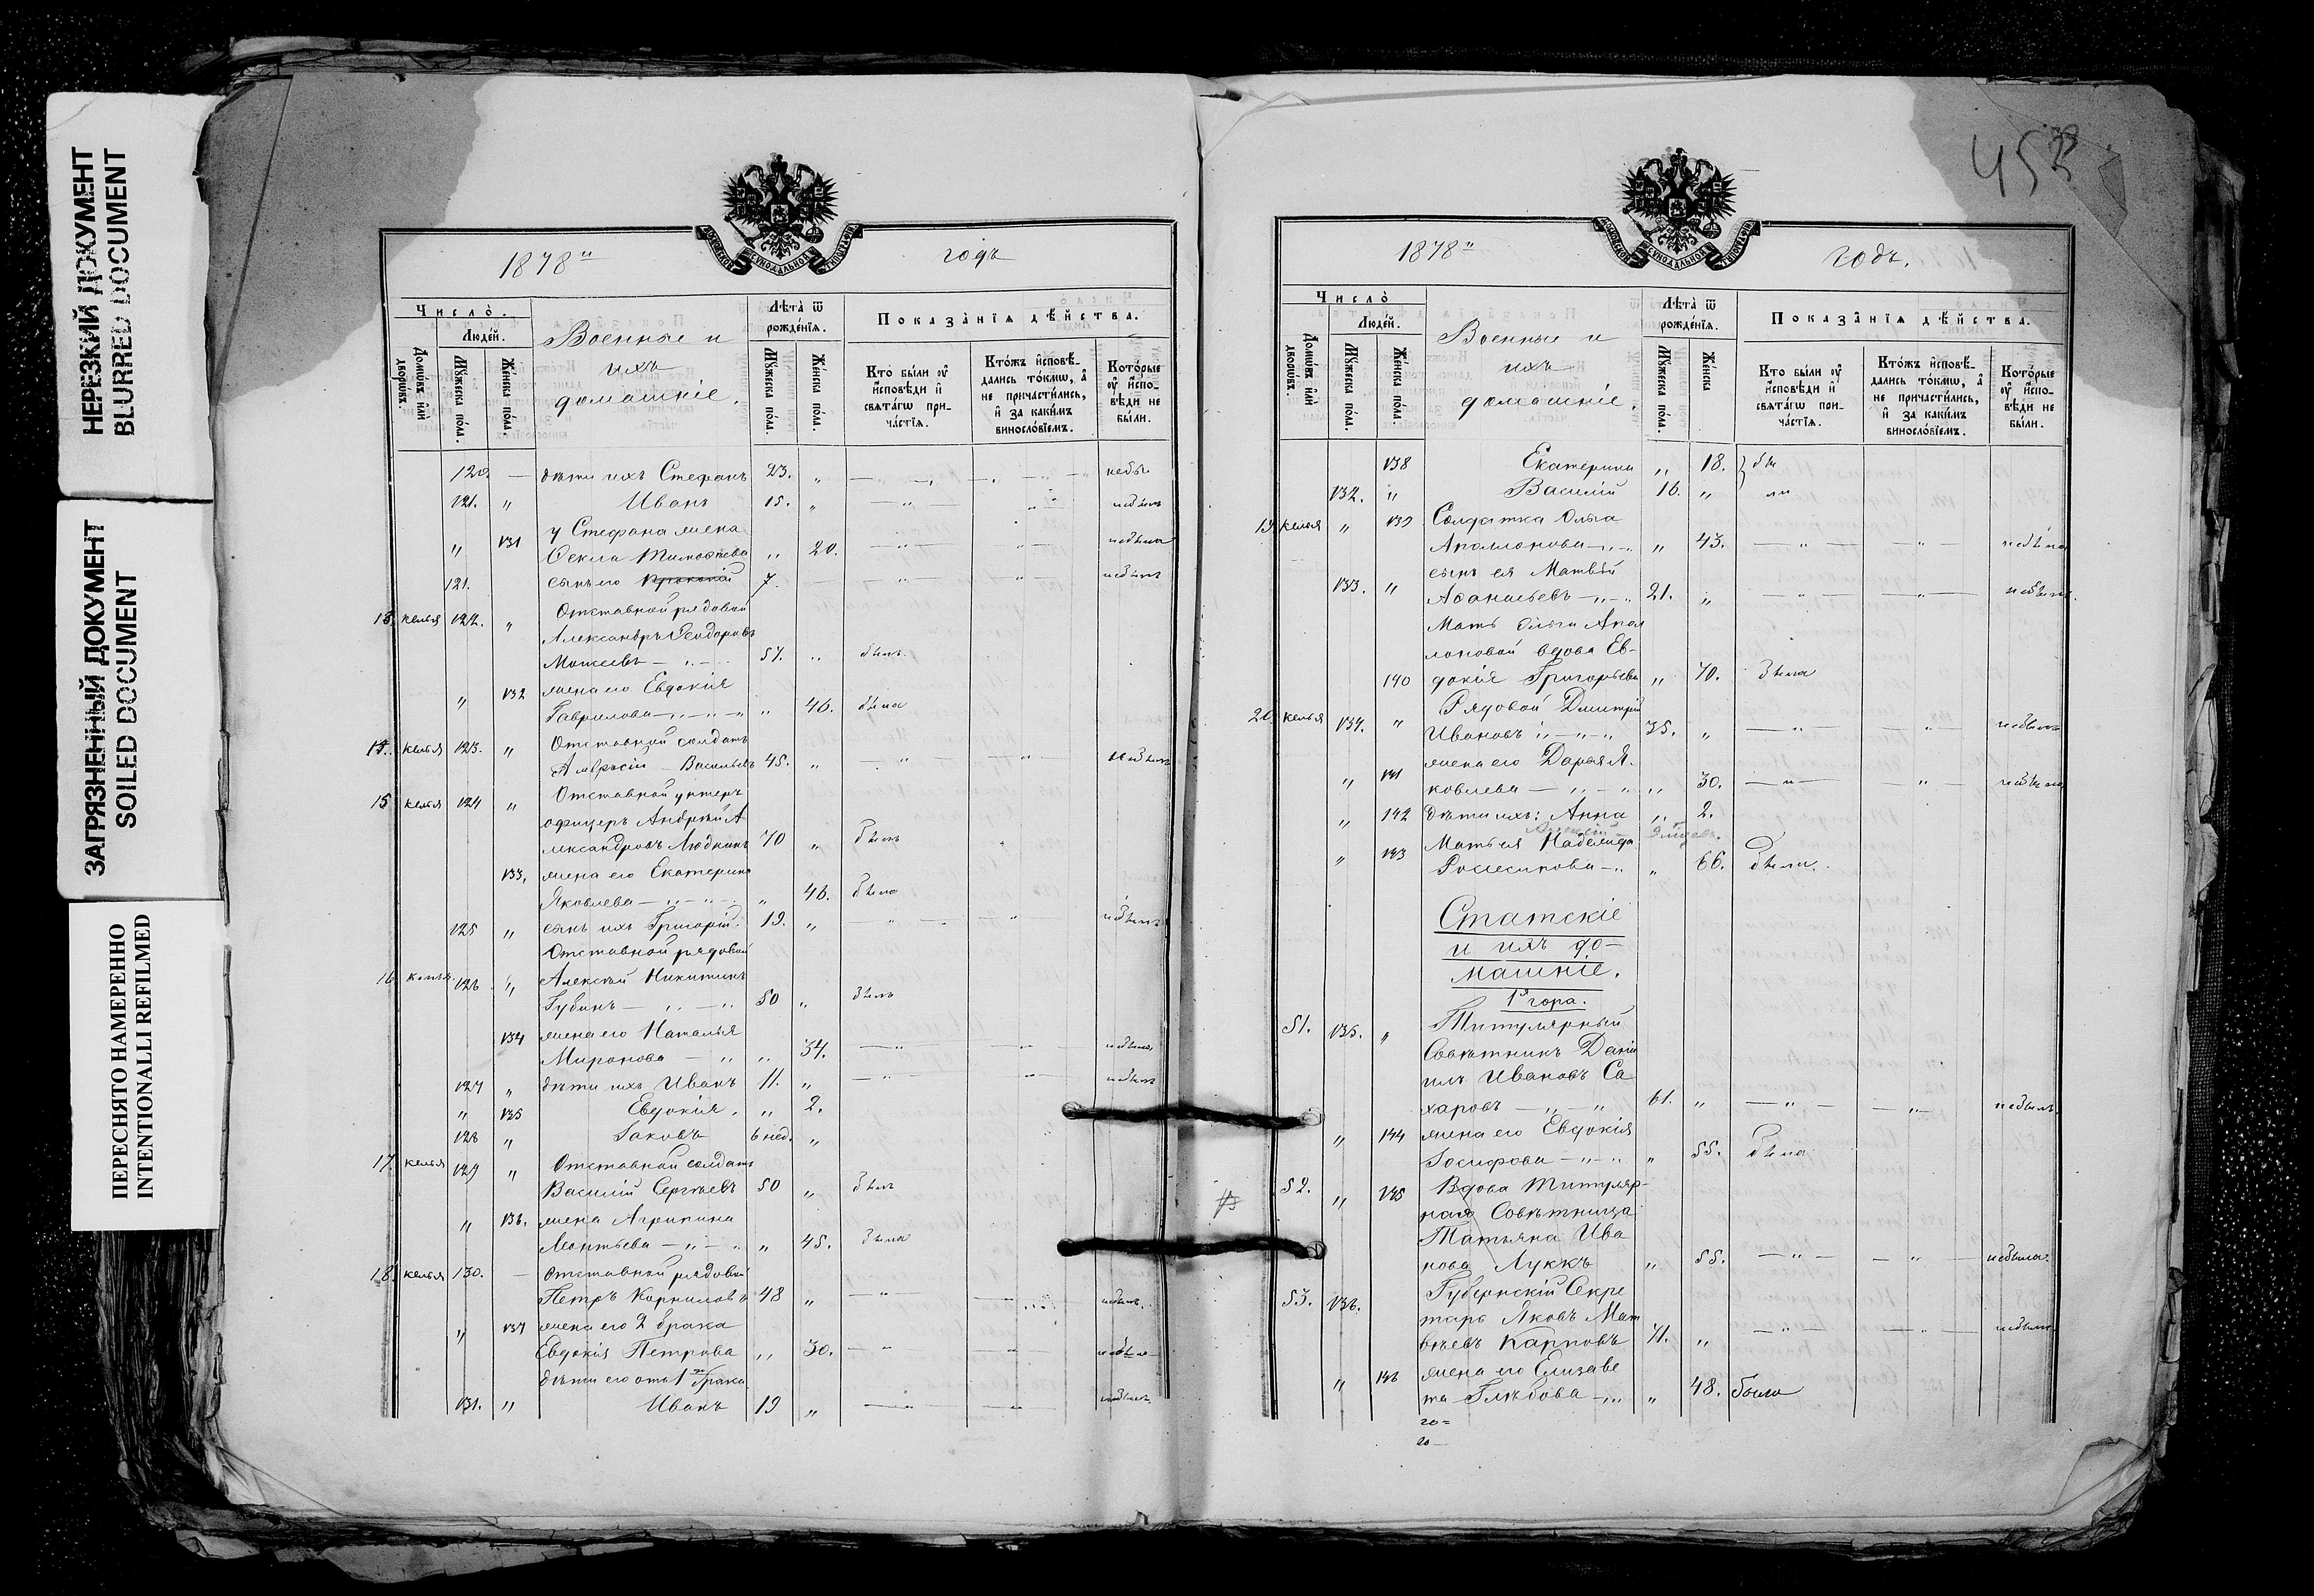 НЕРЕЗКИЙ ДОКУМЕНТ
BLURRED DOCUMENT
ЗАГРЯЗНЕННЫЙ ДОКУМЕНТ
SOILED DOCUMENT
ПЕРЕСНЯТО НАМЕРЕННО
INTENTIONALLI REFILMED
1878 годъ
Число̀.
Людей.
Домѡвъ и҆лѝ дворѡвъ.
Мꙋжеска пола.
Женска пола.
Военные и
ихъ
домашніе.
Лѣта ѿ рожденїѧ.
Мꙋжеска пол.
Женска пола.
Показа̀нїѧ дѣ́йства.
Кто̀ бы́ли ᲂу҆ и҆сповѣди и҆ свѧта́гѡ причастїѧ.
Кто́жъ и҆сповѣдались то́кмѡ, а҆ не причасти́лись, и҆ за каки́мъ винослові́емъ.
Кото́рые ᲂу҆ и҆сповѣди не бы́ли.
120. — дѣти ихъ Стефанъ 23. „
121. „ Иванъ 15. „ небылъ
„ 131 у Стефана жена
Ѳекла Тимоѳеева „ 20. небыла
121. сынъ его 7. небылъ
13. келья 122. „ Отставной рядовой
Александръ Ѳеодоровъ
57. „ былъ
„ 132 жена его Евдокія
Гаврилова „ 46. была
келья 123. „ Отставной солдатъ
Амвросій Васильевъ 45. „ небылъ
15 келья 124 „ Отставной унтеръ
офицеръ Андрей А
лександровъ Людкинъ 70 „ былъ
133. жена его Екатерина
Яковлева „ 46. была
125 „ сынъ ихъ Григорій. 19. „ небылъ
Отставной рядовой
16 келья 126 „ Алексѣй Никитинъ
Губинъ 50 „ былъ
134 жена его Наталья
Миронова „ 34. небыла
127 „ дѣти ихъ Иванъ 11. „ небылъ
„ 135 Евдокія. „ 2.
128 „ Іаковъ 6 нед. „
17 келья 129 „ Отставной солдатъ
Василій Сергѣевъ 50 „ былъ
„ 136. жена Агрипина
Леонтьева „ 45. была
18 келья 130. — Отставной рядовой
Петръ Корниловъ 48 „ небылъ.
„ 137 жена его 2 брака
Евдокія Петрова „ 30. небыла
дѣти его отъ 1 брака
131. „ Иванъ 19 „ небылъ
1878 годъ.
Число̀
Людей.
Домѡвъ и҆лѝ дворѡвъ.
Мꙋжеска пол.
Женска пола.
Военные и
ихъ
домашніе.
Лѣта ѿ рожденїѧ.
Мꙋжеска пол.
Женска
Показа̀нїѧ дѣ́йства.
Кто̀ бы́ли ᲂу҆ и҆сповѣди и҆ свѧта́гѡ причастїѧ.
Кто́жъ и҆сповѣдались то́кмѡ, а҆ не причасти́лись, и҆ за каки́мъ винослові́емъ.
Кото́рые ᲂу҆ и҆сповѣди не бы́ли.
138 Екатерина „ 18. бы
132. „ Василій 16. „ ли
19 келья „ 139 Солдатка Ольга
Аполлонова „ 43. небыла
133. „ сынъ ея Матвѣй
Аѳанасьевъ 21. „ небылъ.
Мать Ольги Апол
лоновой вдова Ев-
140 докія Григорьева „ 70. была
20 келья 134. „ Рядовой Димитрій
Ивановъ 35. „ небылъ
„ 141 жена его Дарья Я-
ковлева „ 30. небыла
„ 142 дѣти ихъ: Анна „ 2.
„ 143 Мать ея Надежда
„ 66. была.
Статскіе
и ихъ до-
машніе.
1я гора.
51. 135. „ Титулярный
Совѣтникъ Дані
илъ Ивановъ Са
харовъ 61. „ небылъ
„ 144 жена его Евдокія
Іосифова „ 55. была
52. „ 145 Вдова Титуляр-
ная Совѣтница
Татьяна Ива
нова Луккъ „ 55. небыла.
53. 136. Губернскій Секре
тарь Яковъ Мат
вѣевъ Карповъ 71. „ небылъ
„ 146 жена его Елизаве
та Глѣбова „ 48. была